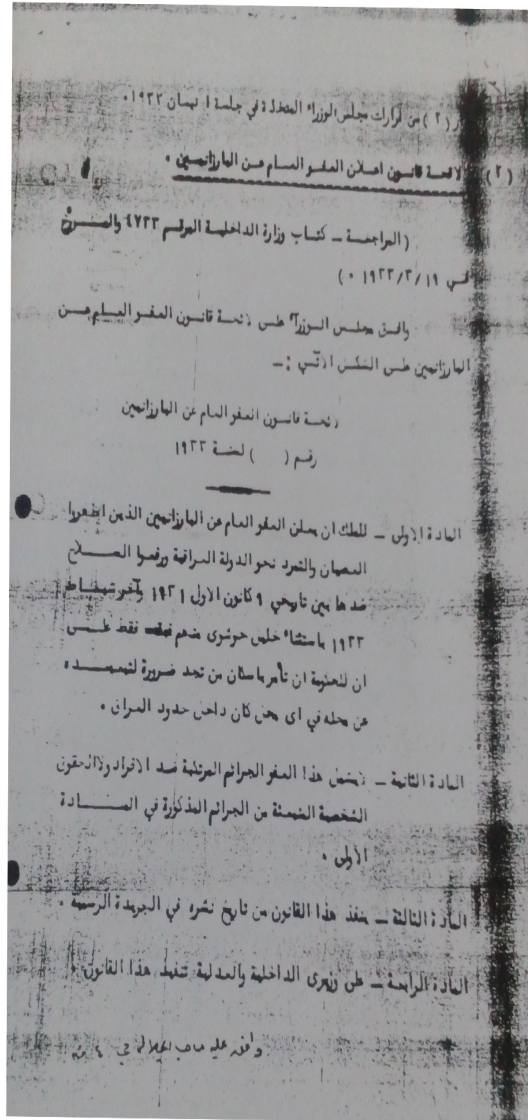 (٢) من قرارات مجلس الوزراء المتخذة في جلسة ١ نيسان ١٩٣٣.
(٢) لائحة قانون اعلان العفو العام عن البارزانيين.
(المراجعة ــ كتاب وزارة الداخلية المرقم ٤٧٣٣ والمؤرخ
في ١٩/٣/١٩٣٣.)
وافق مجلس الوزراء على لائحة قانون العفو العام عن
البارزانيين على الشكل الآتي :ــ
لائحة قانون العفو العام عن البارزانيين
رقم (   ) لسنة ١٩٣٣
المادة الاولى ــ للملك ان يعلن العفو العام عن البارزانيين الذين اظهروا
العصيان والتمرد نحو الدولة العراقية ورفعوا السلاح
ضدها بين تاريخي ٩ كانون الاول ١٩٣١ وآخر شباط
١٩٣٣ باستثناء خليل خوشوى منهم فقط على
ان للحكومة ان تأمر باسكان من تجد ضرورة لتبعيده
عن محله في اى محل كان داخل حدود العراق.
المادة الثانية ــ لا يشمل هذا العفو الجرائم المرتكبة ضد الافراد ولا الحقوق
الشخصية المنبعثة من الجرائم المذكورة في المادة
الأولى.
المادة الثالثة ــ ينفذ هذا القانون من تاريخ نشره في الجريدة الرسمية.
المادة الرابعة ــ على وزيرى الداخلية والعدلية تنفيذ هذا القانون.
وافق عليه صاحب الجلالة في ٤ منه